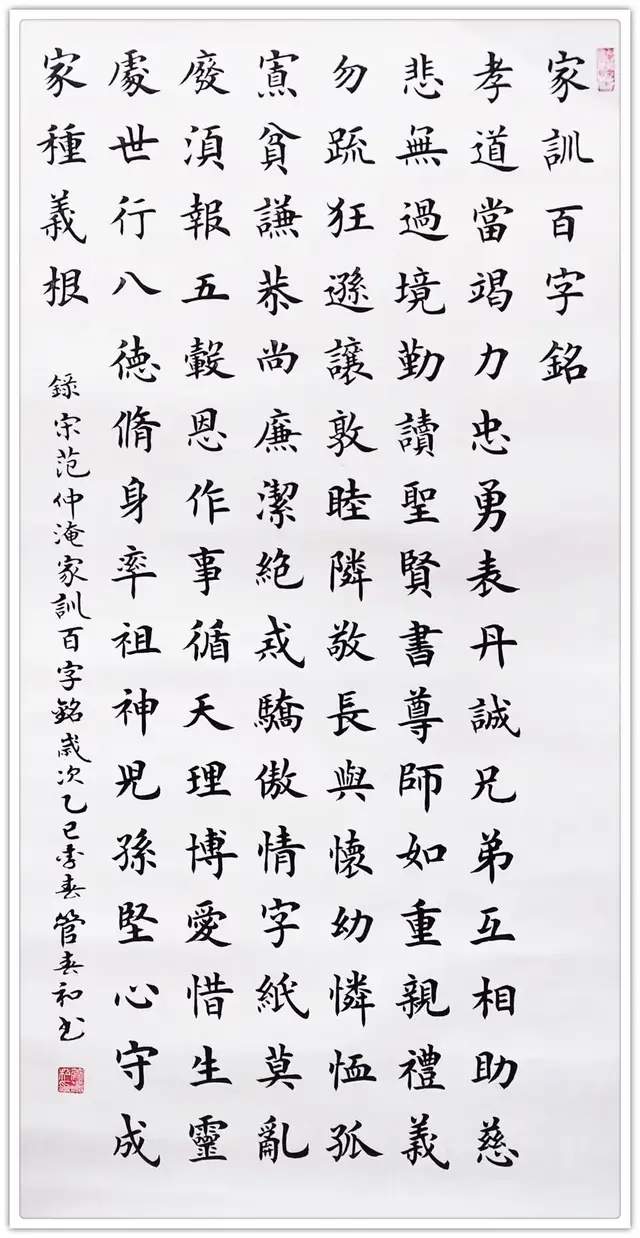 家訓百字銘
孝道當竭力忠勇表丹誠兄弟互相助慈
悲無過境勤讀聖賢書尊師如重親禮義
勿疏狂遜讓敦睦隣敬長與懷幼憐恤孤
寡貧謙恭尚廉潔絶戒驕傲情字紙莫亂
廢須報五穀恩作事循天理博愛惜生靈
處世行八德脩身率祖神兒孫堅心守成
家種義根
錄宋范仲淹家訓百字銘歲次乙巳季春管春和書